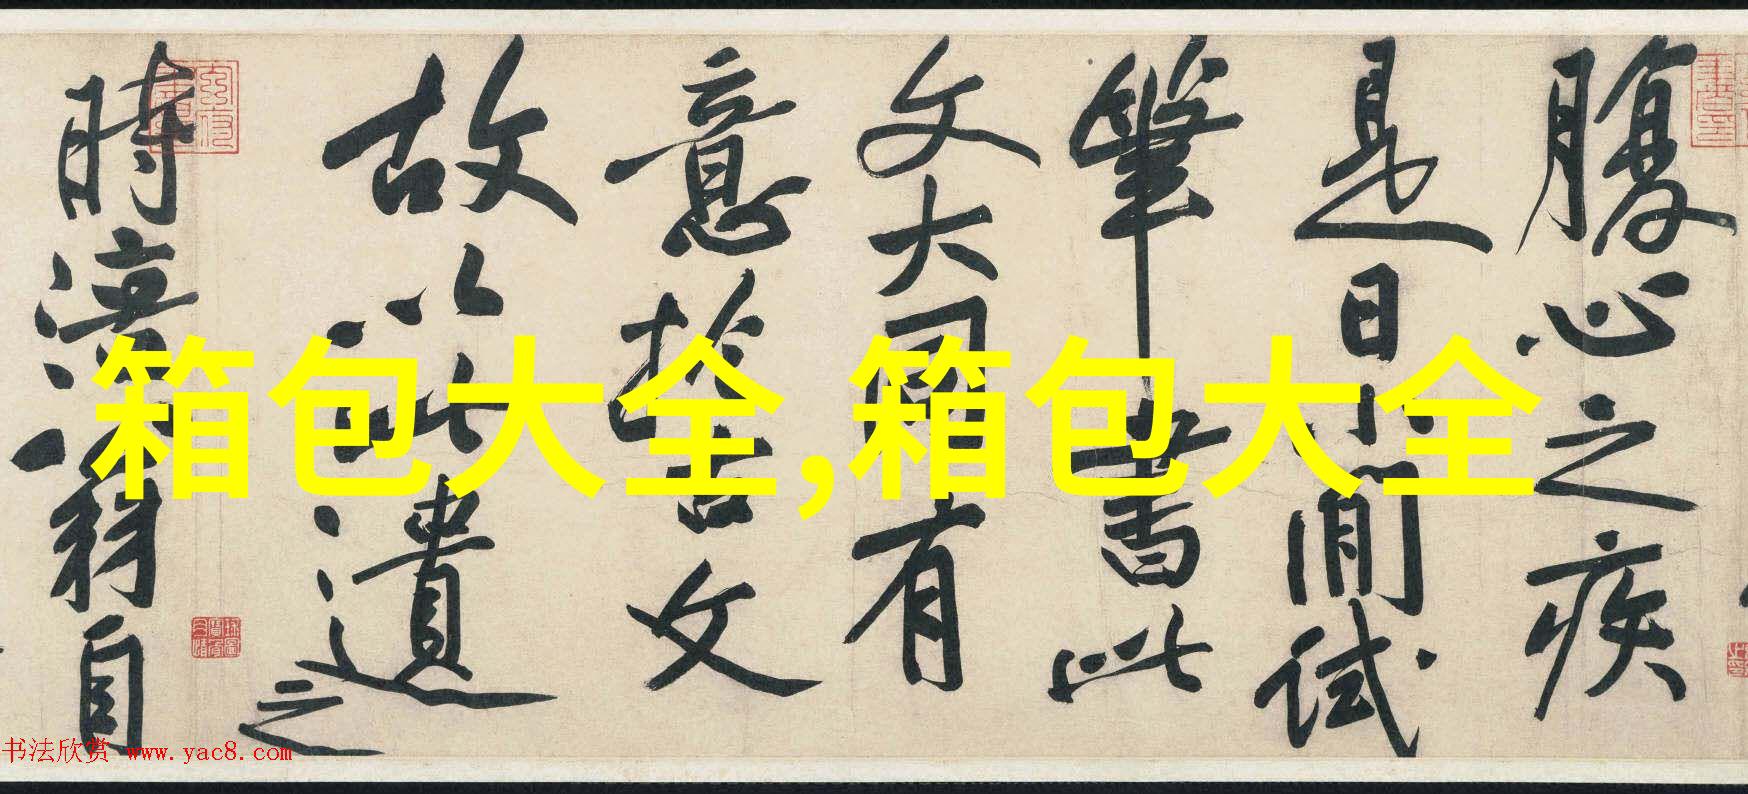 腹心之疾
是日小閒試
筆書此
文大同有
意於古文
故以此遺之
時涪翁自
箱包大全,箱包大全
书法欣赏 www.yac8.com